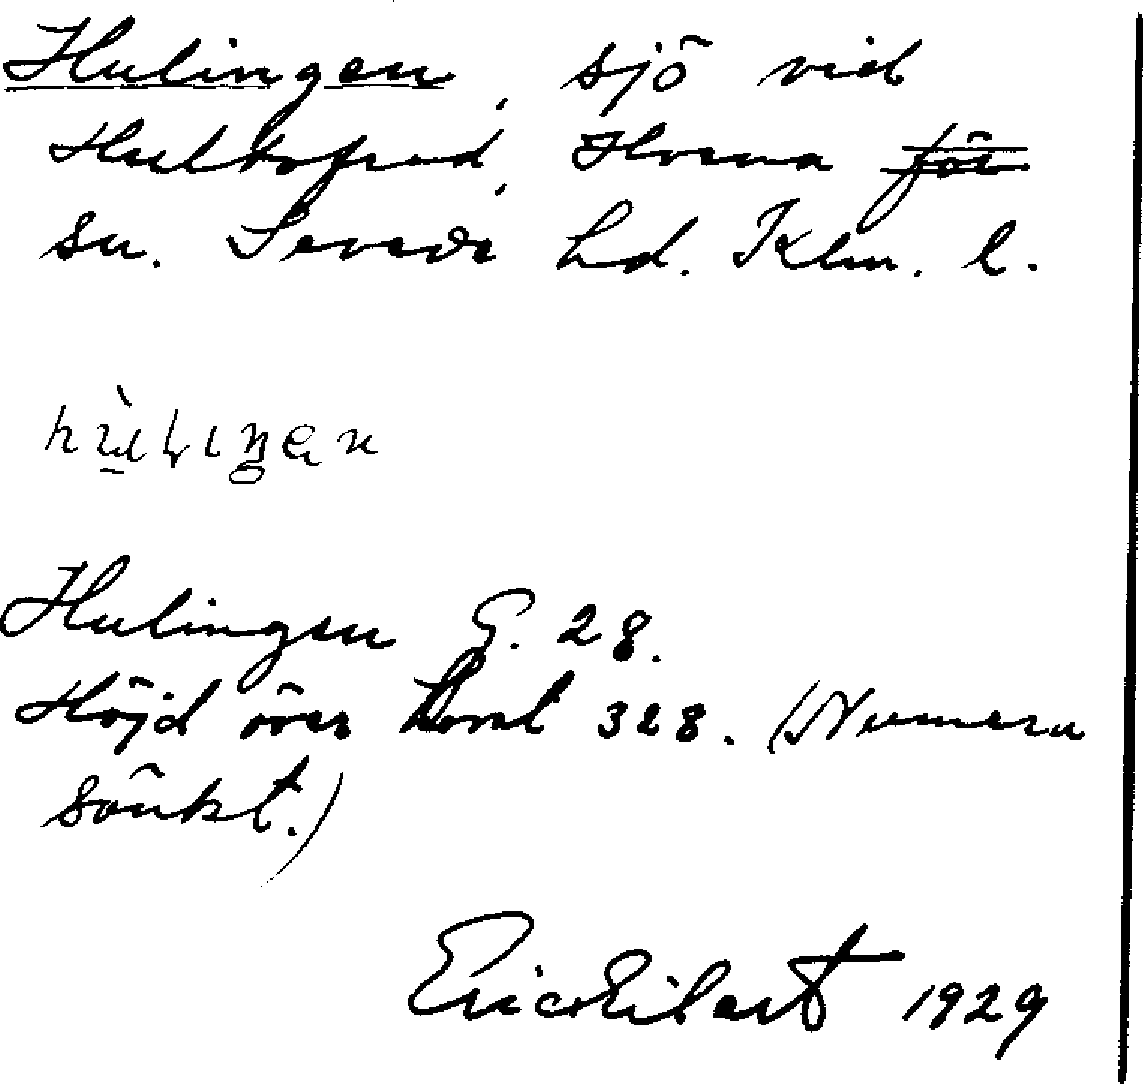 Hulingen, sjö vid
Hultsfred, Hvena
sn. Sevede hd. Klm. l.
Hulingen G. 28.
Höjd över havet 328. (Numera
sänkt.)
Eric Eilert 1929